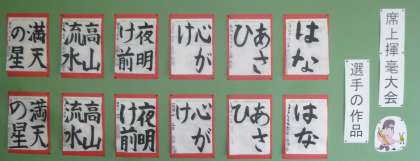 席上揮毫大会
選手の作品
はな
あさひ
心がけ
夜明け前
高山流水
満天の星
はな
あさひ
心がけ
夜明け前
高山流水
満天の星